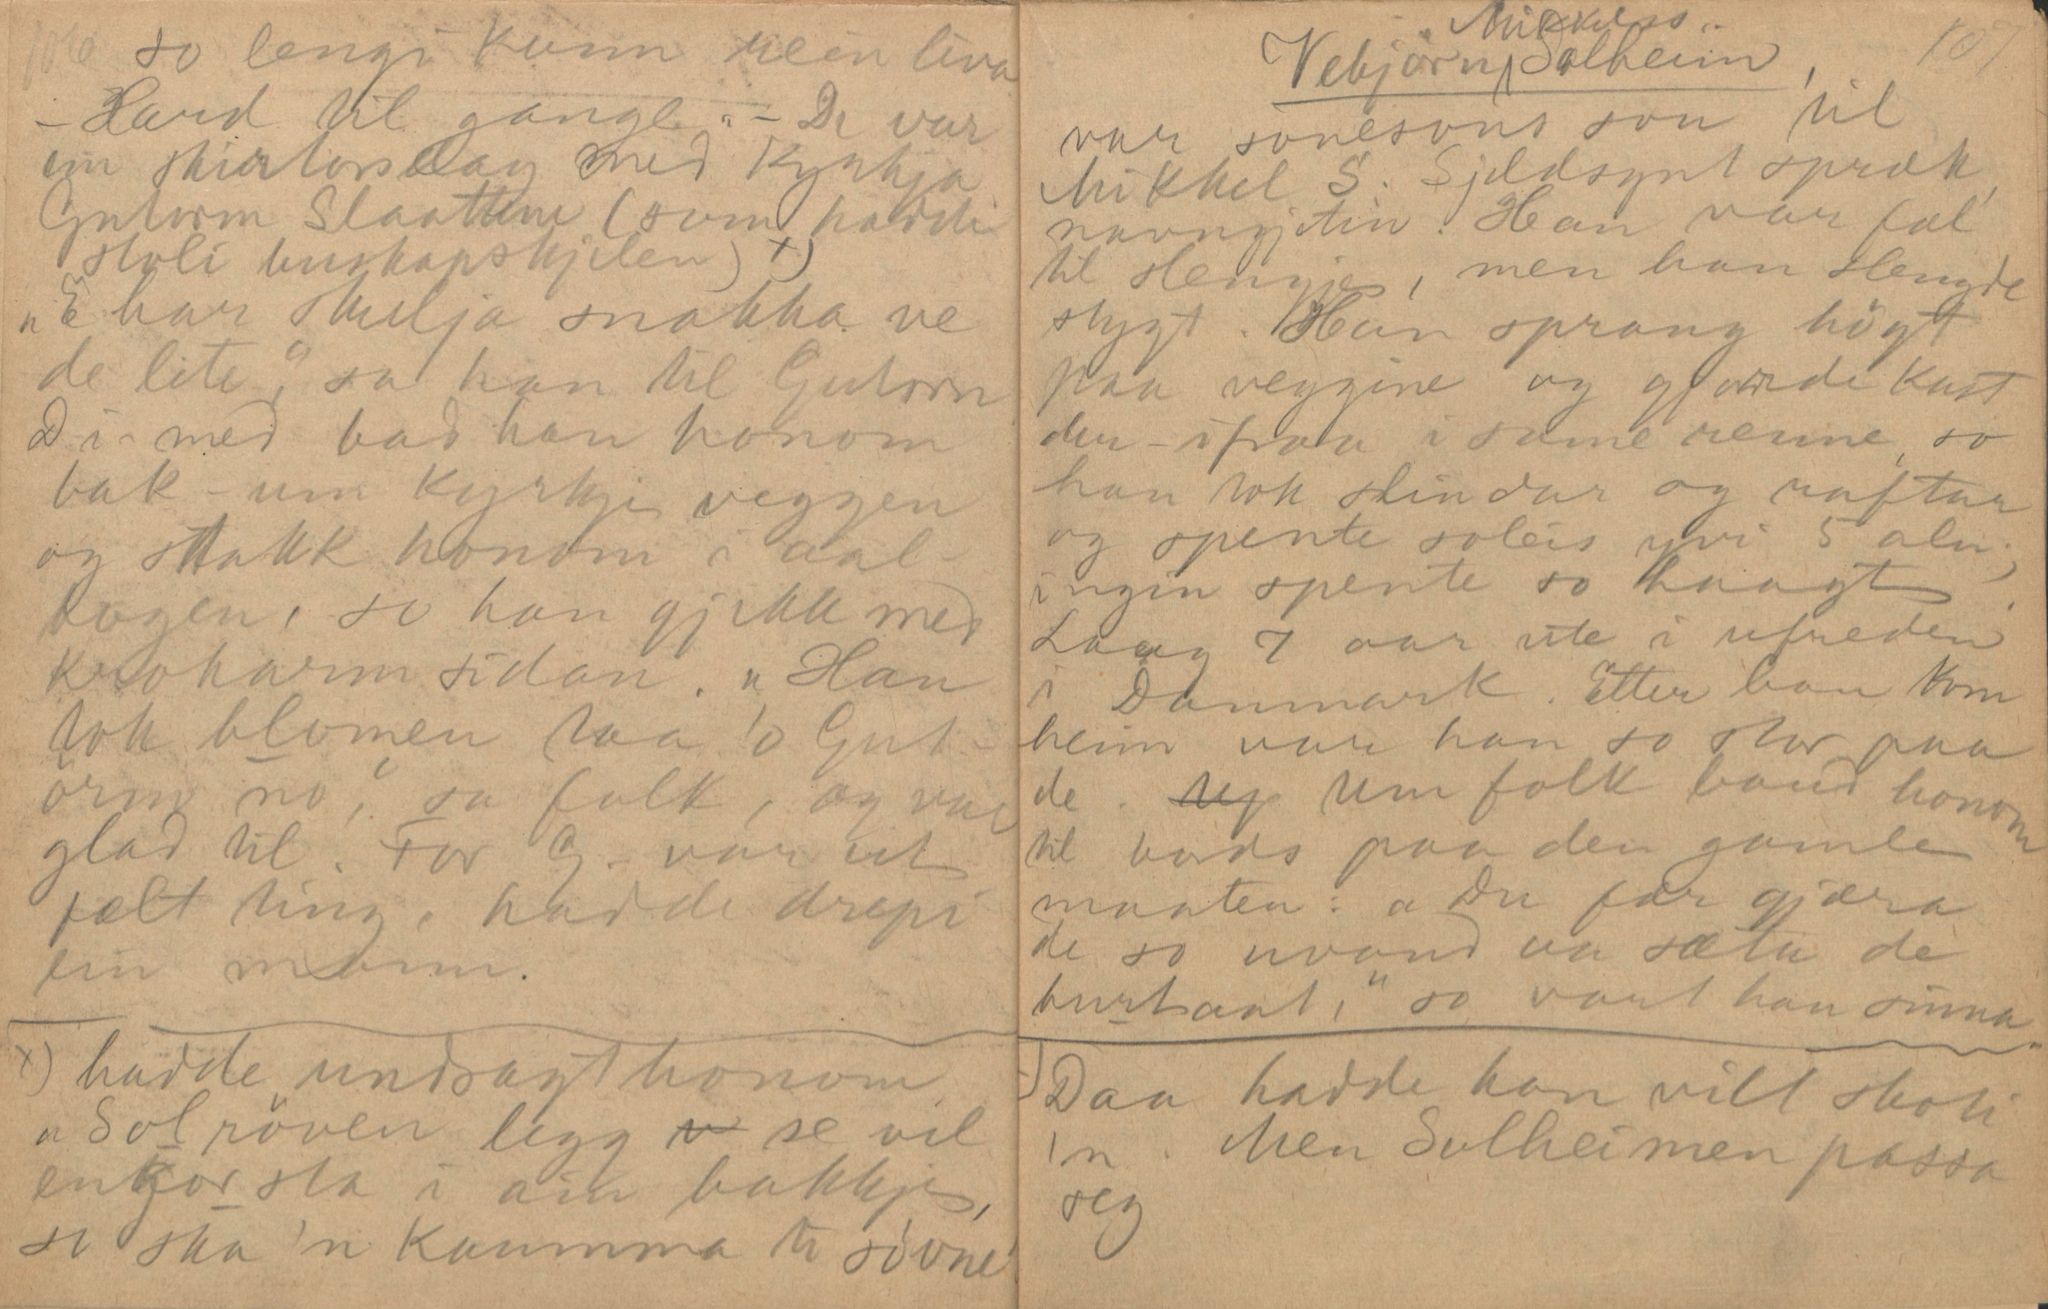 106
so lengi kunn rein liva
- Hard til gangls." - De var
ein skirtorsdag med Kyrkja
Gutorm Slaatten (som haddi
stoli buskapskjelen) x)
"E har skulja snakka ve
de lite", sa han til Gutorm
Di-med bad han honom
bak-um Kyrkje veggen
og stakk honom i aal-
bogen, so han gjekk med
krokarm sidan. "Han
tok blomen taa 'o Gut-
orm no", sa folk, og var
glad til. For G. var eit
fælt ting, hadde drepi
ein mann.
x) hadde undsagt honom
"Solröven legg se vil
enkor sta i ain bakkje,
so ska 'n kaumma te sovne
107
Mikkelss.
Vebjörn Solheim,
var sonesons son til
Mikkel S. Sjeldsynt spræk,
navngjetin. Han var fal
til slengje, men han slengde
stygt. Han sprang högt
paa veggine og gjorde kast
der-ifraa i same renne, so
han tok slindar og raftar
og spente soleis yvi 5 aln.,
ingin spente so haagt.
Laag 7 aar ute i ufreden
i Danmark. Etter han kom
heim var han so stor paa
de. Um folk baud honom
til bords paa den gamle
maaten: "Du fær gjæra
de so uvand va sæta de
burtaat," so vart han sinna
Daa hadde han vilt skoti
'n. Men Solheimen passa
seg